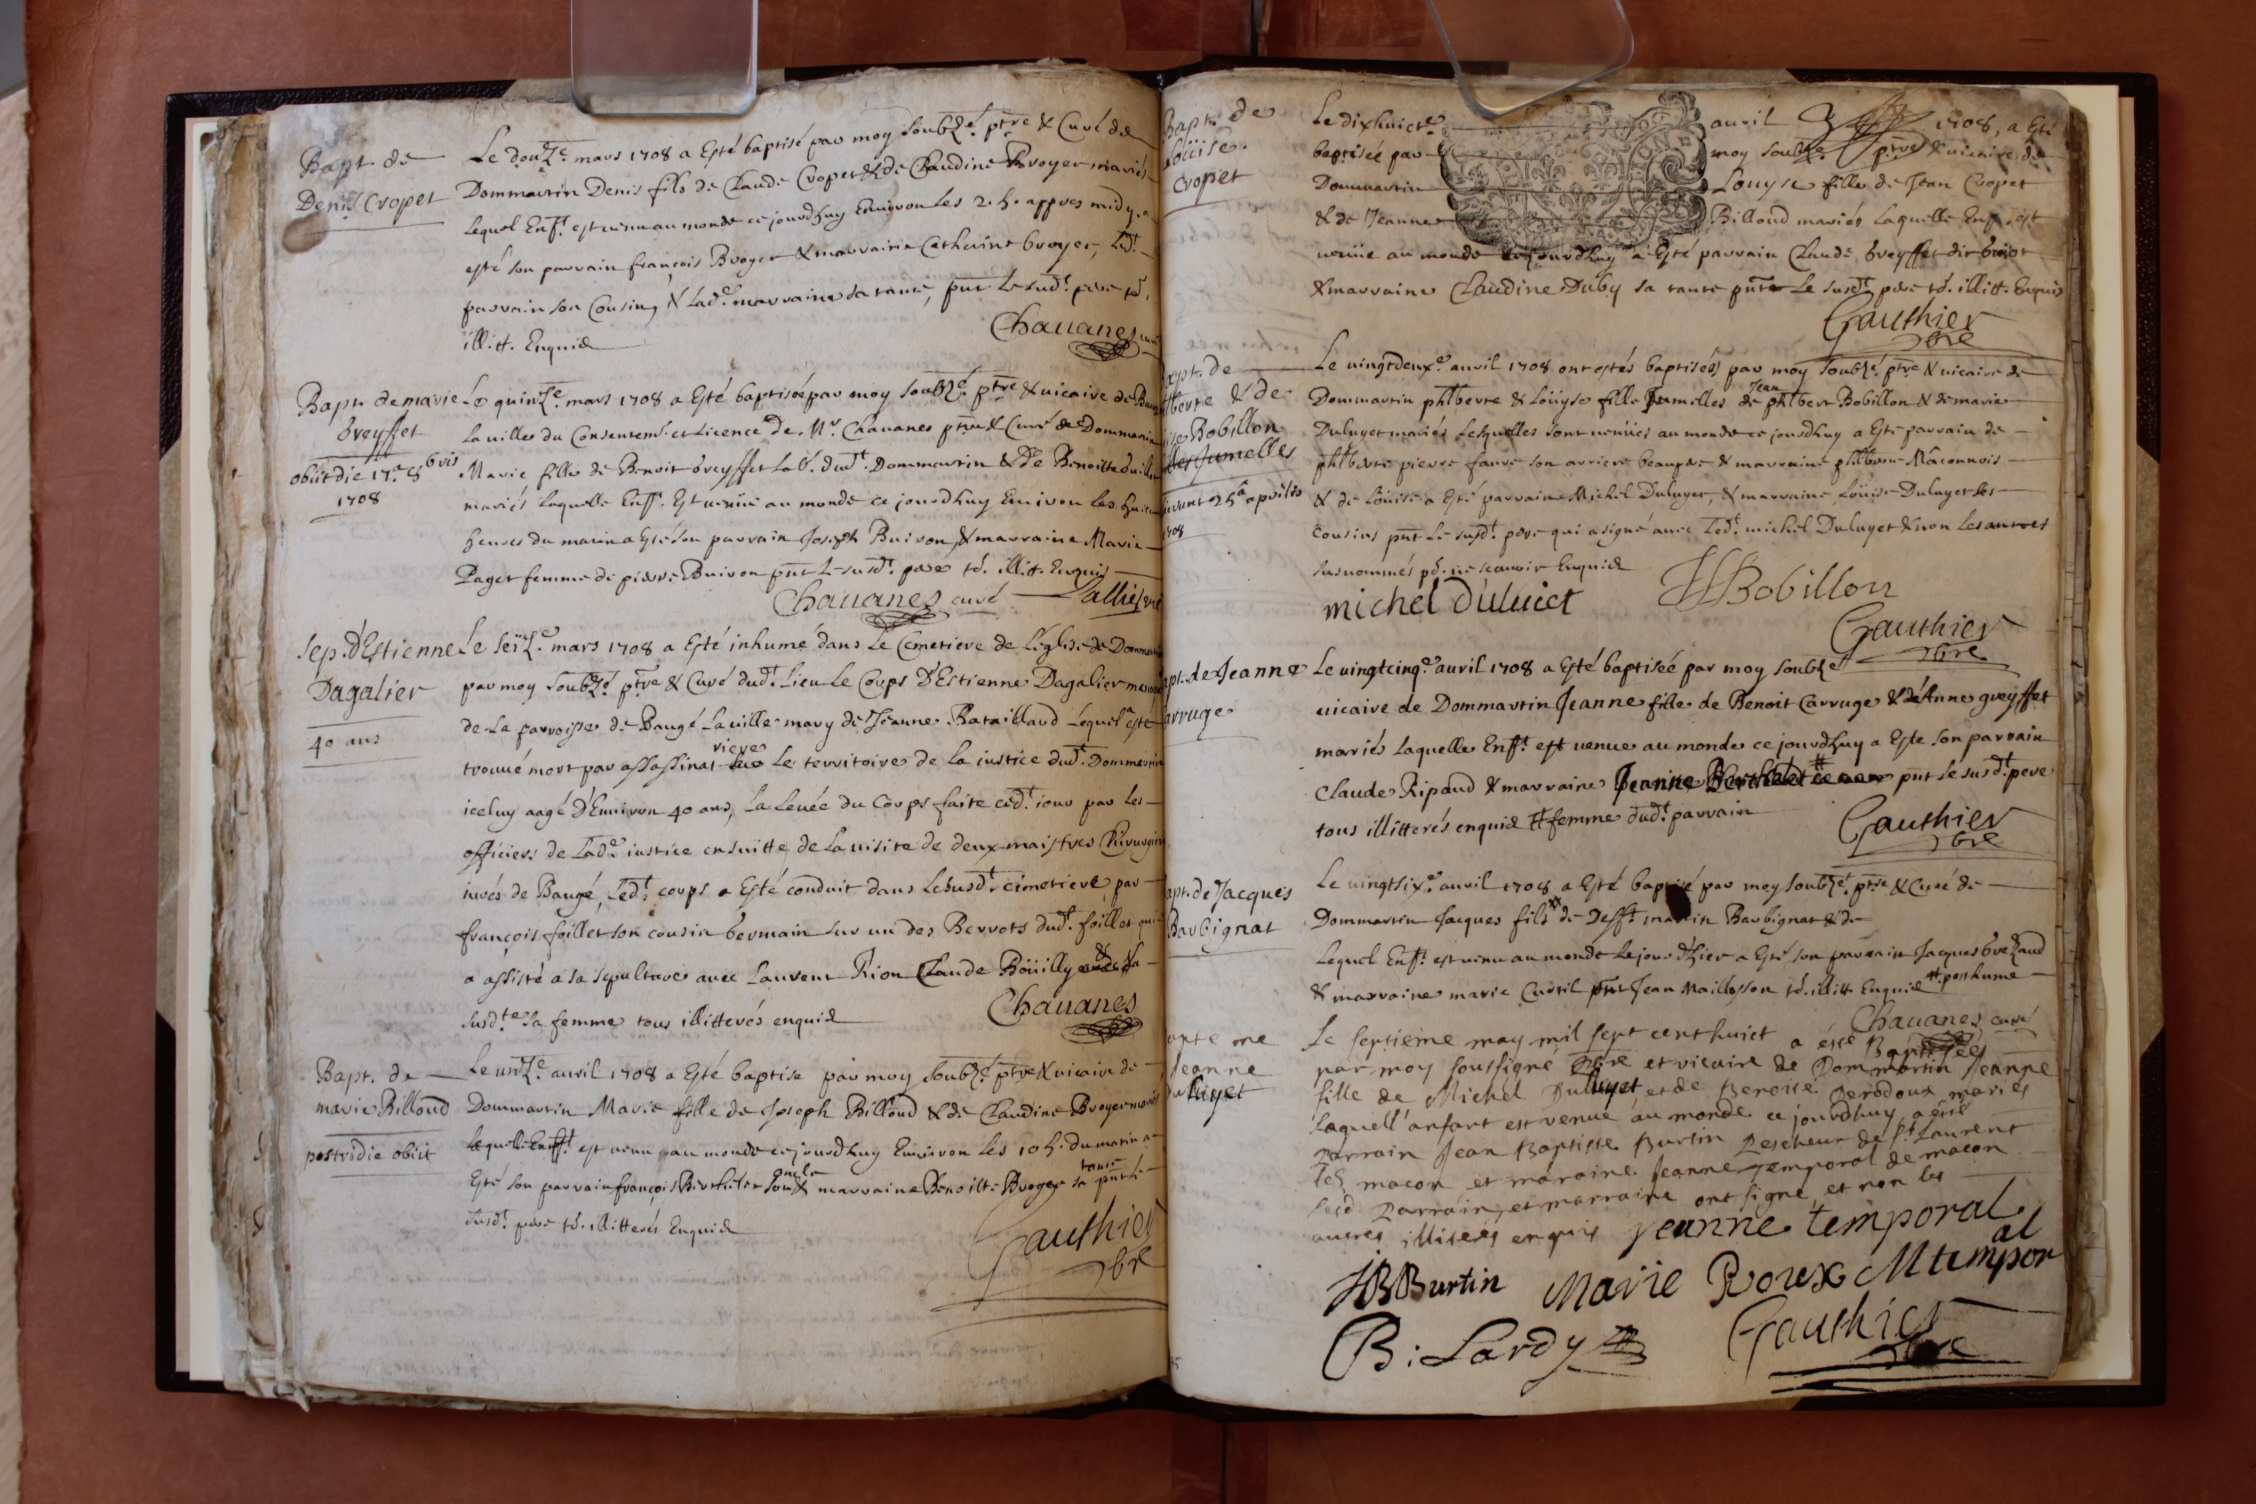 Bapt. de
Denis Cropet
Le douze. mars 1708 a Esté baptisé par moy soubzé. ptre & Curé de
Dommartin Denis fils de Claude Cropet & de Claudine Broyer mariés
lequel Enft. est venu au monde ce jourdhuy Environ les 2. h. appres midy. a
esté son parrain françois Broyer & marraine Catherine broyer, led.t
parrain son Cousin, & lad.e marraine sa tante, pnt le susd.t pere td.
illitt. Enquis
Chauanes curé
Bapt. de marie
Greyffet
obiit die 17.a 8bris
1708
Le quinze. mars 1708 a Esté baptisée par moy soubzé. ptre & uicaire de Baugé
la uille du Consentemt. et Licence de Mr. Chauanes ptre & Curé de Dommartin
Marie fille de Benoit Greyffet lab. dud.t Dommartin & de Benoitte
mariés laquelle Enft. Est uenüe au monde ce jourdhuy Enuiron les huict
heures du matin a Esté son parrain Joseph Buiron, & marraine Marie
Paget femme de pierre Buiron pnt Le susd.t pere td. illitt. Enquis
Chauanes curé
Sep. d'Estienne
Dagalier
40 ans
Le seiz.e mars 1708 a Esté inhumé dans Le Cemetiere de L'églize de Dommartin
par moy soubzé. ptre & Curé dud.t Lieu Le Corps d'Estienne Dagalier
de La parroisse de Baugé La uille mary de Jeanne Bataillard Lequel a esté
trouué mort par assassinat riere Le territoire de La iustice dud.t Dommartin
iceluy aagé d'Enuiron 40 ans, La Leuée du Corps faite ced.t iour par Les
officiers de Lad.e iustice ensuitte de La uisite de deux maistres Chirurgiens
iurés de Baugé, Led.t corps a Esté conduit dans Le susd.t cimetiere, par
françois foillet son cousin Germain sur un des Berrots dud.t foillet qui
a assisté a sa sepulture auec Laurent Rion Claude Boüilly & La
susd.te sa femme tous illitterés enquis
Chauanes
Bapt. de
marie Billoud
postridie obiit
Le unz.e auril 1708 a Esté baptise par moy soubzé. ptre & uicaire de
Dommartin Marie fille de Joseph Billoud & de Claudine Broyer mariés
laquelle Enft. est uenu au monde ce jourdhuy Enuiron les 10 h. du matin a
Esté son parrain françois Berthelet son oncle & marraine Benoitte Broyer sa tante pnt le
susd.t pere td. illitterés Enquis
Gauthier
pbre
Bapt. de
Loüise
Cropet
Le dixhuict.e auril 1708, a Esté
baptisée par moy soubzé. ptre & uicaire de
Dommartin Louyse fille de Jean Cropet
& de Jeanne Billoud mariés Laquelle Enft. est
uenüe au monde cejourdhuy a Esté parrain Claude Greyffet dit
& marraine Claudine Duby sa tante pnt Le susd.t pere td. illitt. Enquis
Gauthier
pbre
Bapt. de
& de
Bobillon
Jumelles
aprilis
1708
Le uingtdeux.e auril 1708 ont estés baptisées par moy soubzé. ptre & uicaire de
Dommartin phlberte & Loüyse filles Jumelles de Jean phlbert Bobillon & de marie
Duluyet mariés Lesquelles sont uenües au monde ce jourdhuy a Esté parrain de
phlberte pierre faure son arriere beaupere & marraine phlberte Mâconnois
& de Loüise a Esté parrain Michel Duluyet, & marraine Loüise Duluyet ses
cousins pnt Le susd.t pere qui a signé auec Led.t michel Duluyet & non Les autres
susnommés pr. ne scauoir Enquis
michel duluiet
Bobillon
Gauthier
pbre
Bapt. de Jeanne
Carruge
Le uingtcinq.e auril 1708 a Esté baptisée par moy soubzé
uicaire de Dommartin Jeanne fille de Benoit Carruge & de Anne greyffet
mariés laquelle Enft. est uenue au monde ce jourdhuy a Este son parrain
Claude Ripaud & marraine Jeanne Berthelet # pnt le susd.t pere
tous illitterés enquis # femme dud.t parrain
Gauthier
pbre
Bapt. de Jacques
Barbignat
Le uingtsix.e auril 1708 a Esté baptisé par moy soubzé. ptre & Curé de
Dommartin Jacques fils # de deff.t martin Barbignat & de
Lequel Enft. est uenu au monde Le jour d'hier a Esté son parrain Jacques Grezaud
& marraine marie Curtil pnt Jean Maillesson td. illitt. Enquis # posthume
Chauanes curé
Jeanne
duluyet
Le septieme may mil sept cent huict a éste Baptisée
par moy soussigné pbre et vicaire de Dommartin Jeanne
fille de Michel Duluyet et de Benoite Perodoux mariés
laquell' anfant est venue au monde ce jourdhuy a esté
parrain Jean Baptiste Burtin Pescheur de St. Laurent
les macon et maraine Jeanne Temporal de macon
lesd parrain et marraine ont signé et non les
autres illiterés enquis Jeanne temporal
JBBurtin Marie Roux M temporal
B: Lardy
Gauthier
pbre